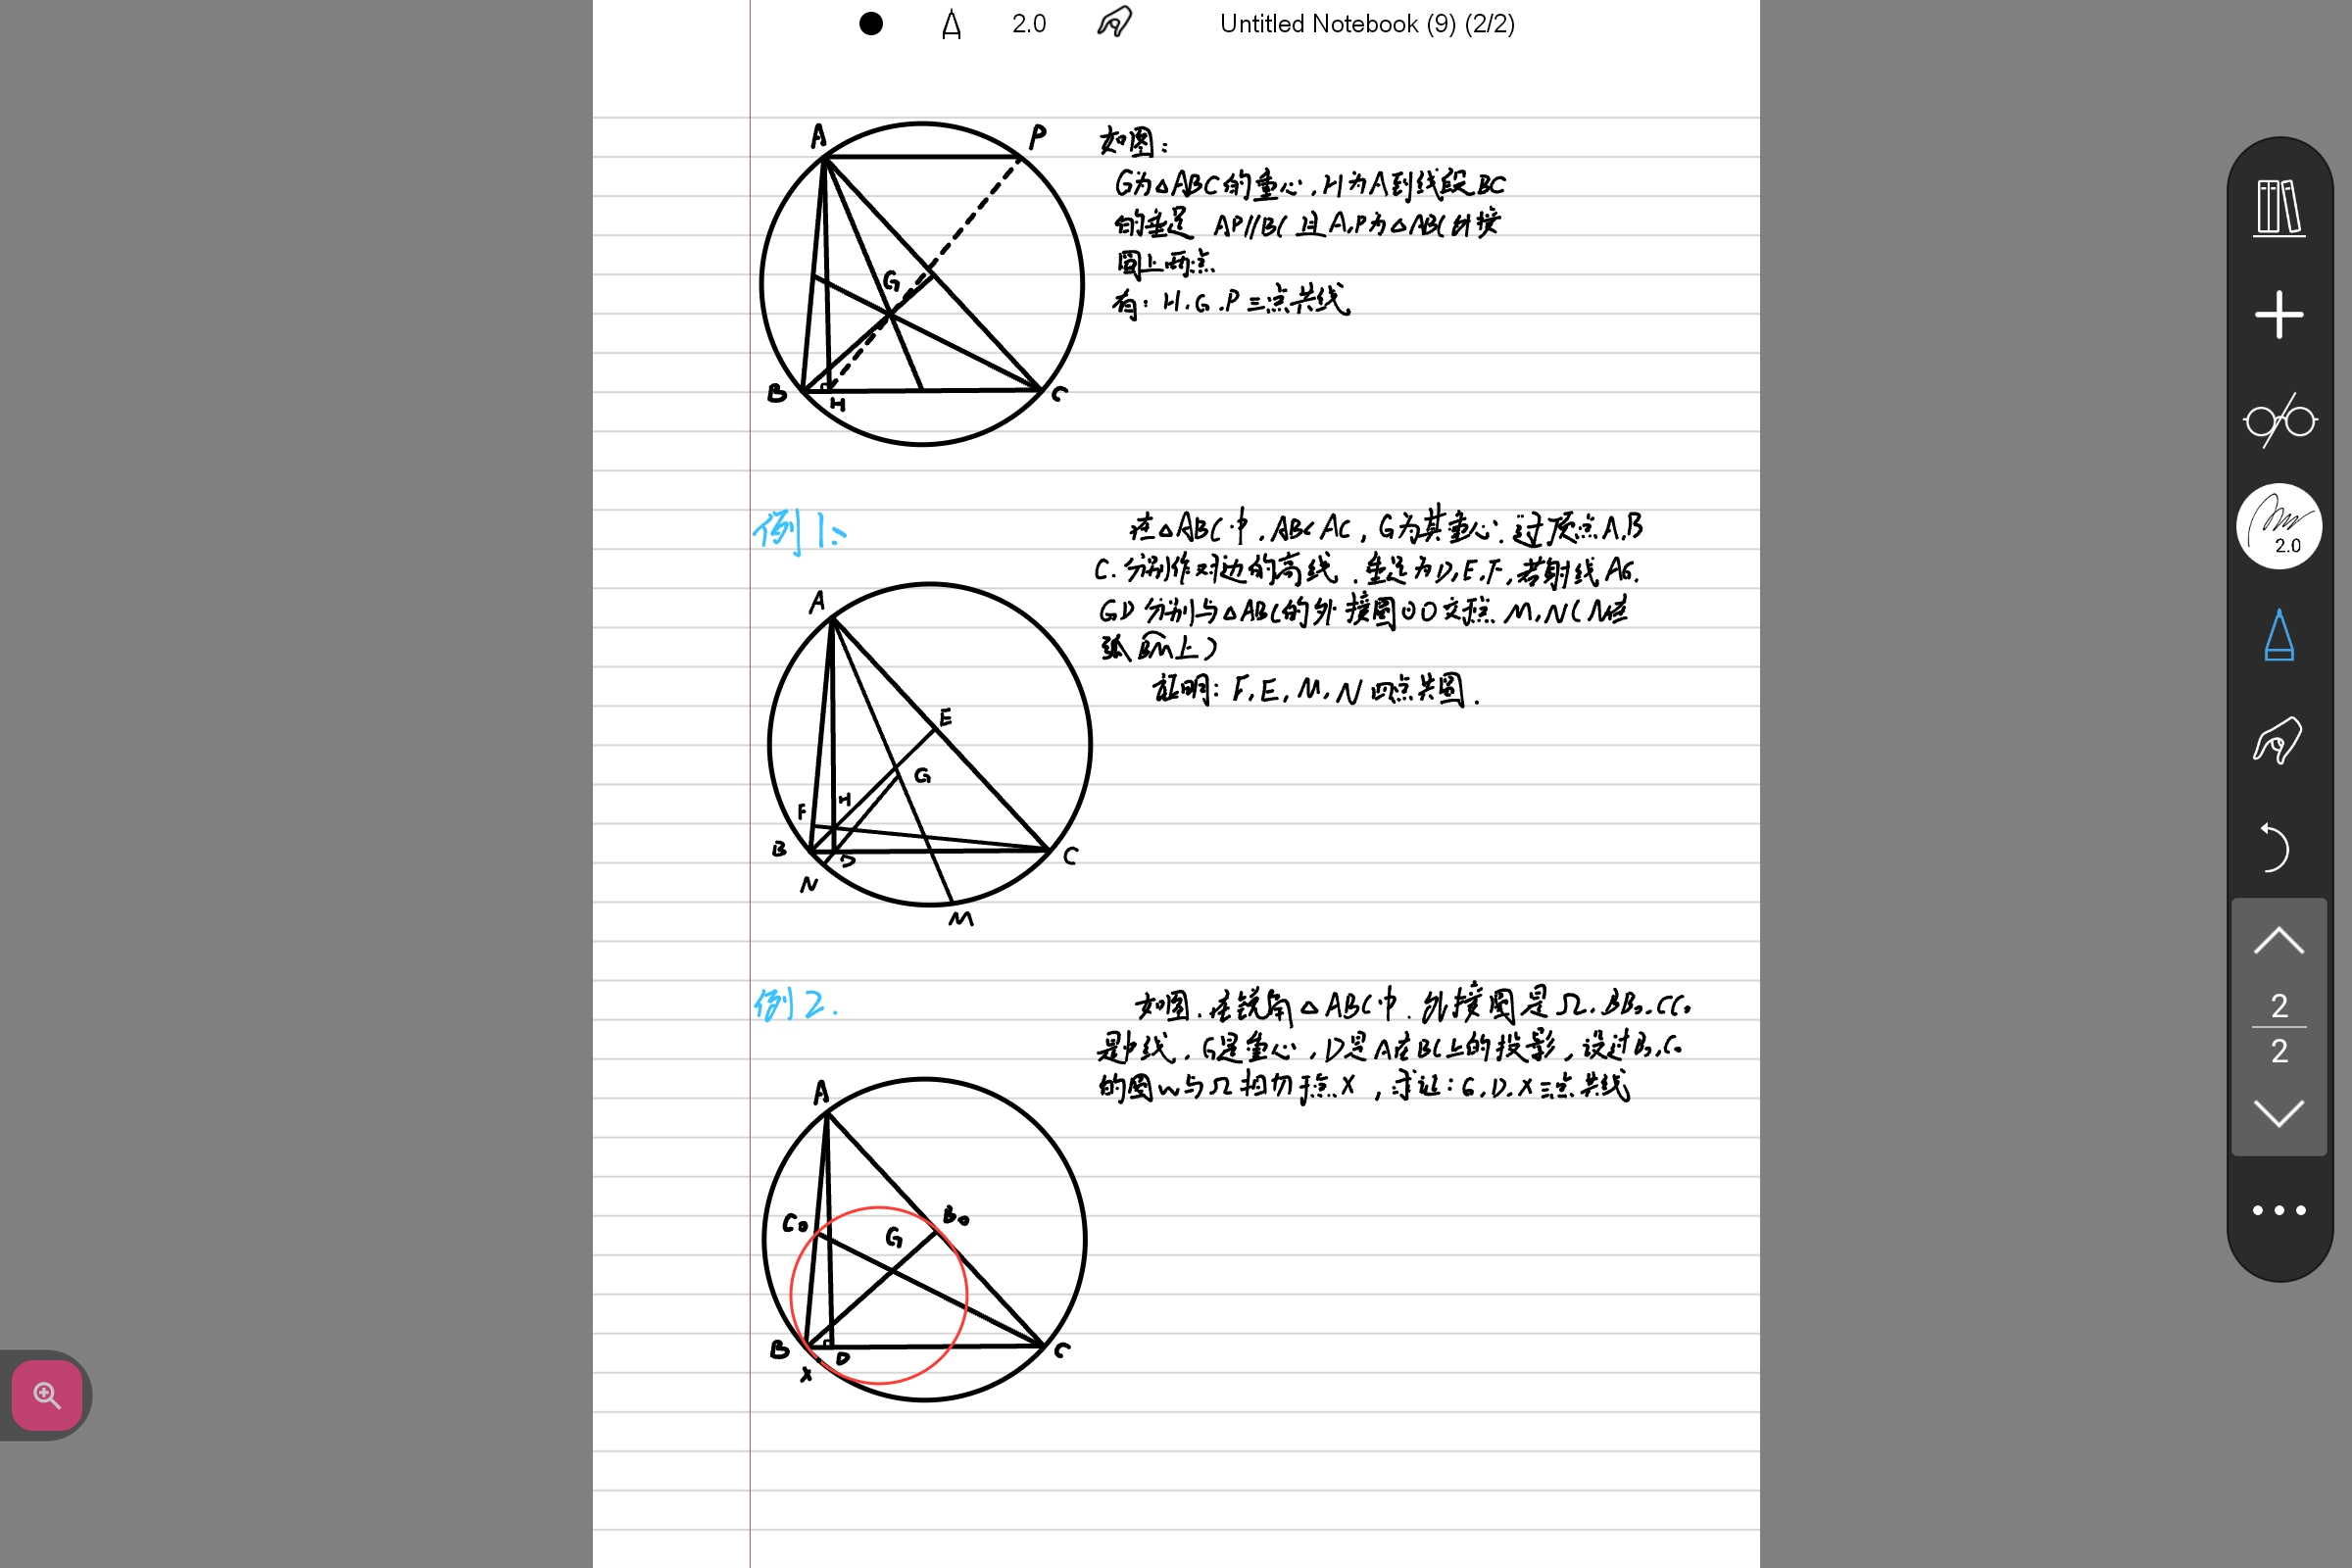 2.0
Untitled Notebook (9) (2/2)
A
P
G
B
H
C
如图：
G为△ABC的重心，H为A到线段BC
的垂足 AP//BC 且A,P为△ABC外接
圆上两点
有：H.G.P三点共线
例1：
A
E
G
H
F
B
D
C
N
M
在△ABC中，AB<AC，G为其重心，过顶点A,B
C.分别作对边的高线．垂足为D,E,F，若射线AG.
GD分别与△ABC的外接圆⊙O交于点 M,N(N在
弧BM上)
证明：F,E,M,N四点共圆.
例2.
A
C₀
B₀
G
B
D
C
X
如图．在锐角△ABC中．外接圆是Ω．BB₀.CC₀
是中线，G是重心，D是A在BC上的投影，设过B₀,C₀
的圆w与Ω相切于点X，求证：G,D,X三点共线
2.0
2
2